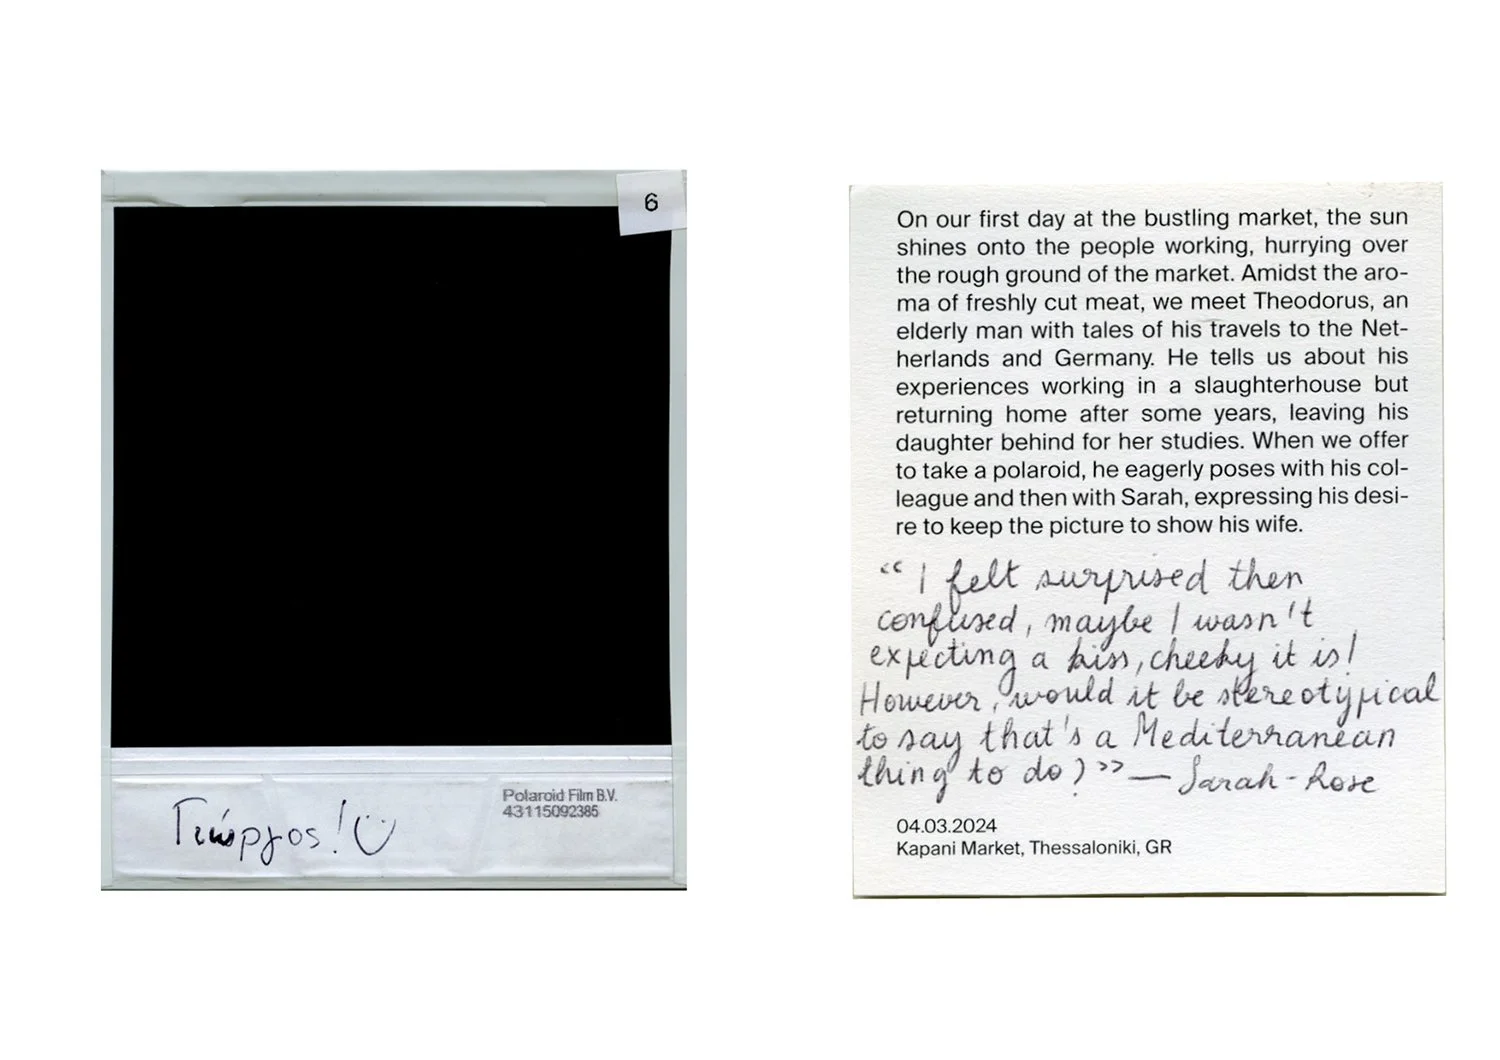 6
Γιώργος!
Polaroid Film B.V.
43115092385
On our first day at the bustling market, the sun
shines onto the people working, hurrying over
the rough ground of the market. Amidst the aro-
ma of freshly cut meat, we meet Theodorus, an
elderly man with tales of his travels to the Net-
herlands and Germany. He tells us about his
experiences working in a slaughterhouse but
returning home after some years, leaving his
daughter behind for her studies. When we offer
to take a polaroid, he eagerly poses with his col-
league and then with Sarah, expressing his desi-
re to keep the picture to show his wife.
“I felt surprised then
confused, maybe I wasn't
expecting a kiss, cheeky it is!
However, would it be stereotypical
to say that's a Mediterranean
thing to do?” — Sarah-Rose
04.03.2024
Kapani Market, Thessaloniki, GR